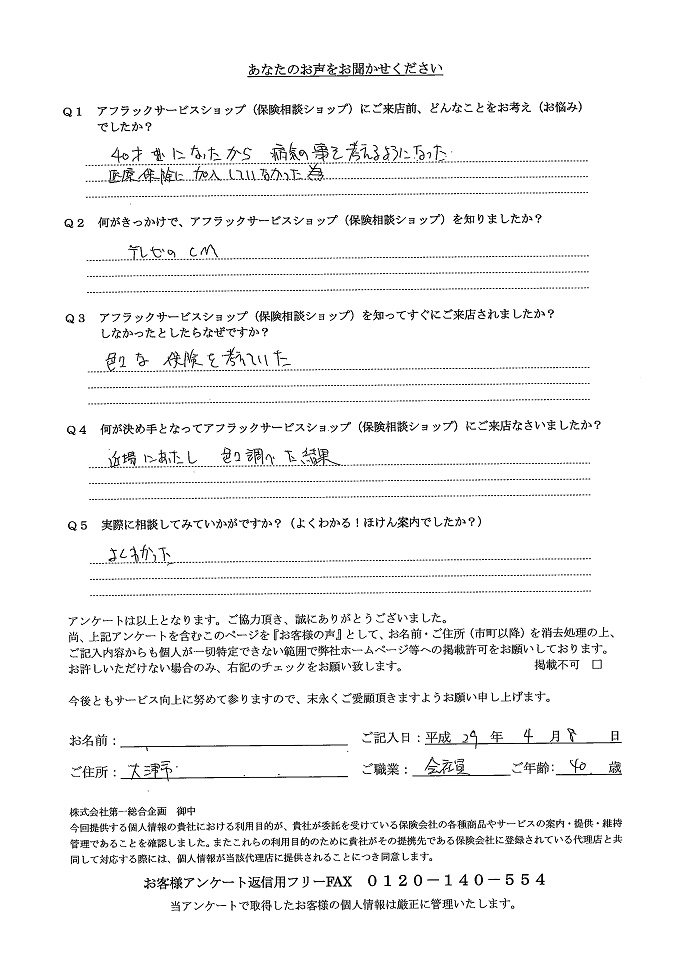 あなたのお声をお聞かせください
Q1 アフラックサービスショップ(保険相談ショップ)にご来店前、どんなことをお考え(お悩み)
でしたか?
40才 になったから 病気の事を考えるようになった
医療保険に加入していなかった為
Q2 何がきっかけで、アフラックサービスショップ(保険相談ショップ)を知りましたか?
テレビのCM
Q3 アフラックサービスショップ(保険相談ショップ)を知ってすぐにご来店されましたか?
しなかったとしたらなぜですか?
色々な 保険を考えていた
Q4 何が決め手となってアフラックサービスショップ(保険相談ショップ)にご来店なさいましたか?
近場にあたし 色々調べた結果
Q5 実際に相談してみていかがですか?(よくわかる!ほけん案内でしたか?)
よくわかった
アンケートは以上となります。ご協力頂き、誠にありがとうございました。
尚、上記アンケートを含むこのページを『お客様の声』として、お名前・ご住所(市町以降)を消去処理の上、
ご記入内容からも個人が一切特定できない範囲で弊社ホームページ等への掲載許可をお願いしております。
お許しいただけない場合のみ、右記のチェックをお願い致します。 掲載不可 □
今後ともサービス向上に努めて参りますので、末永くご愛顧頂きますようお願い申し上げます。
お名前: ご記入日:平成 29 年 4 月 8 日
ご住所: 大津市 ご職業: 会社員 ご年齢: 40 歳
株式会社第一総合企画 御中
今回提供する個人情報の貴社における利用目的が、貴社が委託を受けている保険会社の各種商品やサービスの案内・提供・維持
管理であることを確認しました。またこれらの利用目的のために貴社がその提携先である保険会社に登録されている代理店と共
同して対応する際には、個人情報が当該代理店に提供されることにつき同意します。
お客様アンケート返信用フリーFAX 0120-140-554
当アンケートで取得したお客様の個人情報は厳正に管理いたします。